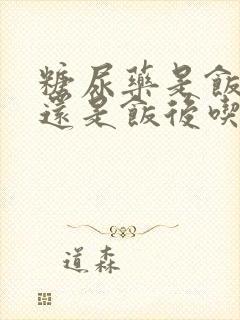 糖尿藥是飯
還是飯後喫
道森